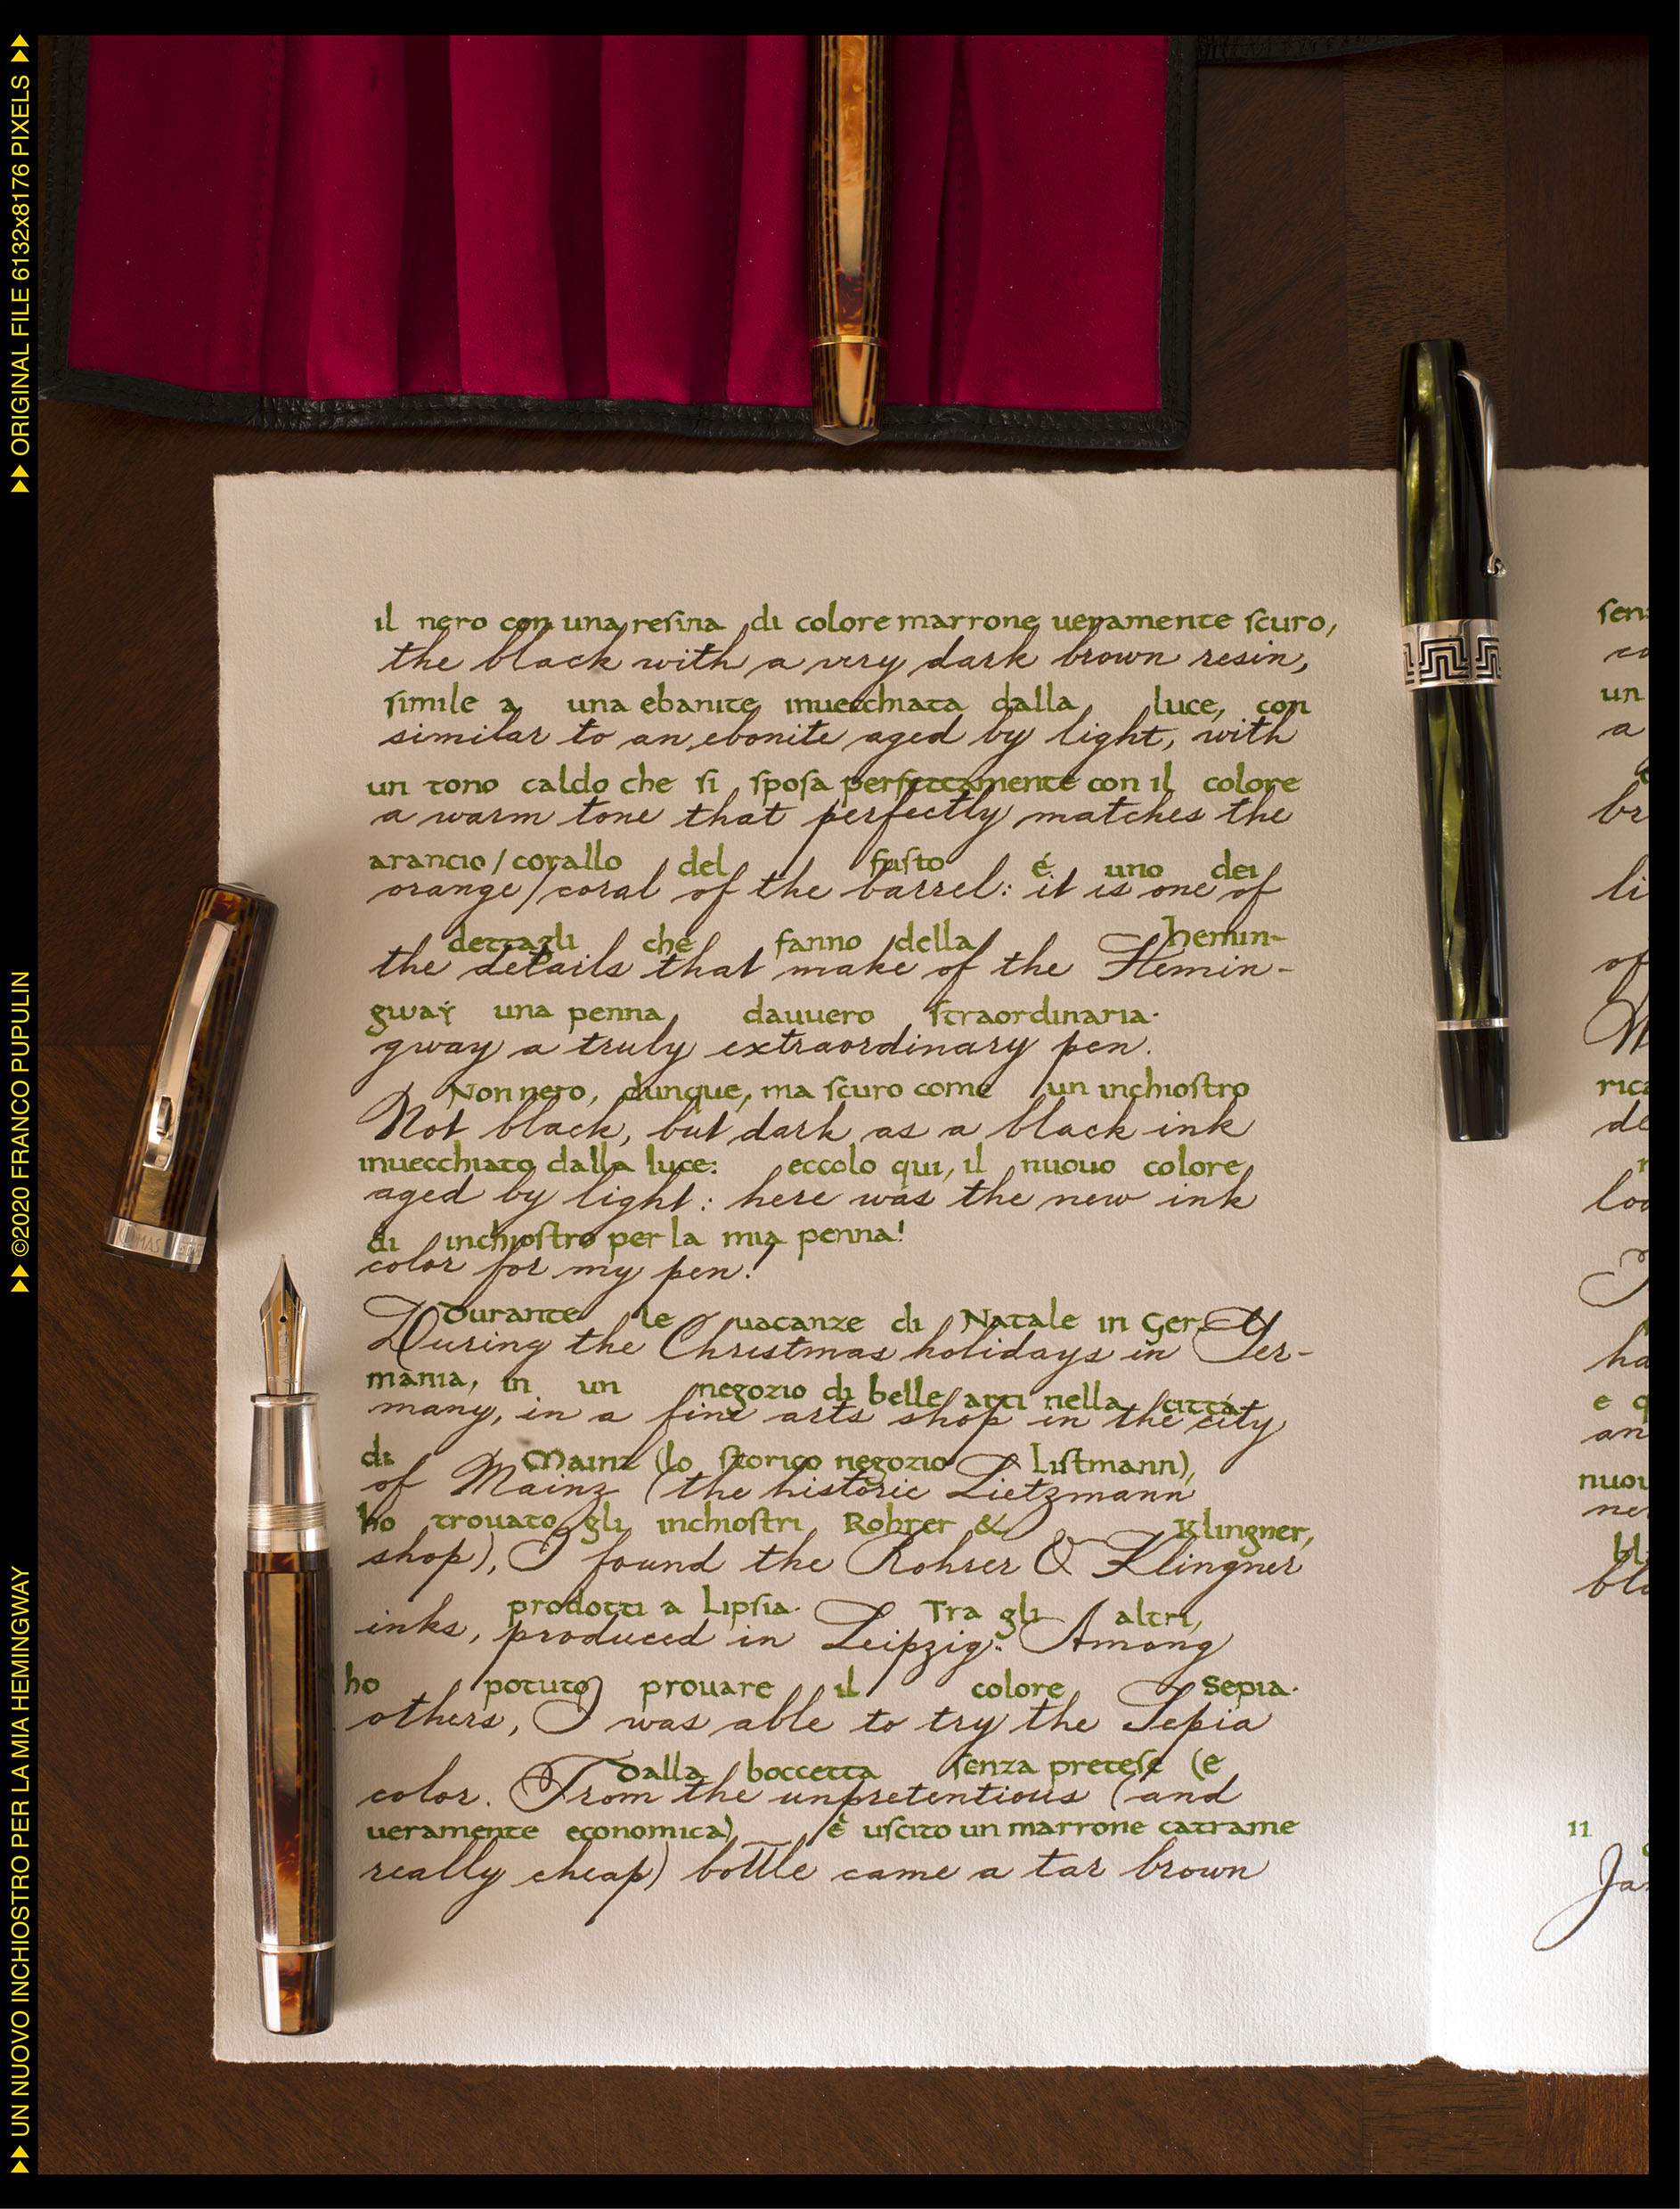 ▶▶ ORIGINAL FILE 6132x8176 PIXELS ▶▶
▶▶ ©2020 FRANCO PUPULIN
▶▶ UN NUOVO INCHIOSTRO PER LA MIA HEMINGWAY
il nero con una resina di colore marrone veramente scuro,
the black with a very dark brown resin,
simile a una ebanite invecchiata dalla luce, con
similar to an ebonite aged by light, with
un tono caldo che si sposa perfettamente con il colore
a warm tone that perfectly matches the
arancio/corallo del fusto é uno dei
orange/coral of the barrel: it is one of
dettagli che fanno della Hemin-
the details that make of the Hemin-
gway una penna davvero straordinaria.
gway a truly extraordinary pen.
Non nero, dunque, ma scuro come un inchiostro
Not black, but dark as a black ink
invecchiato dalla luce: eccolo qui, il nuovo colore
aged by light: here was the new ink
di inchiostro per la mia penna!
color for my pen!
Durante le vacanze di Natale in Ger-
During the Christmas holidays in Ger-
mania, in un negozio di belle arti nella cittá
many, in a fine arts shop in the city
di Mainz (lo storico negozio Listmann),
of Mainz (the historic Lietzmann
ho trovato gli inchiostri Rohrer & Klingner,
shop), I found the Rohrer & Klingner
prodotti a Lipsia. Tra gli altri,
inks, produced in Leipzig. Among
ho potuto provare il colore Sepia.
others, I was able to try the Sepia
Dalla boccetta senza pretese (e
color. From the unpretentious (and
veramente economica) è uscito un marrone catrame
really cheap) bottle came a tar brown
un
a
li
of
e q
an
11